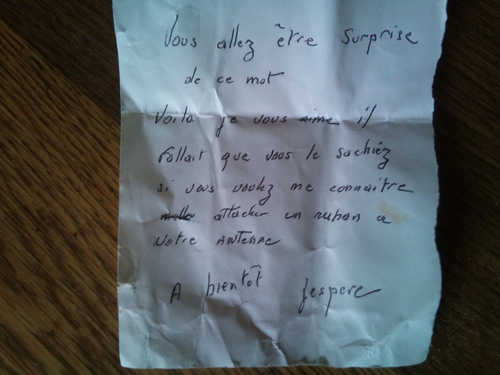 Vous allez être surprise
de ce mot
Voila je vous aime il
fallait que vous le sachiéz
si vous voulez me connaitre
attacher un ruban a
votre ANTENNE
A bientôt j'espere